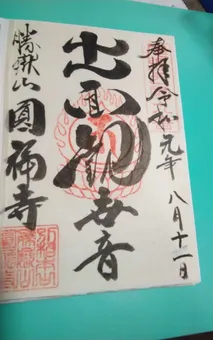 奉拝 令和元年 八月十一日
出世観世音
勝嶽山 圓福寺